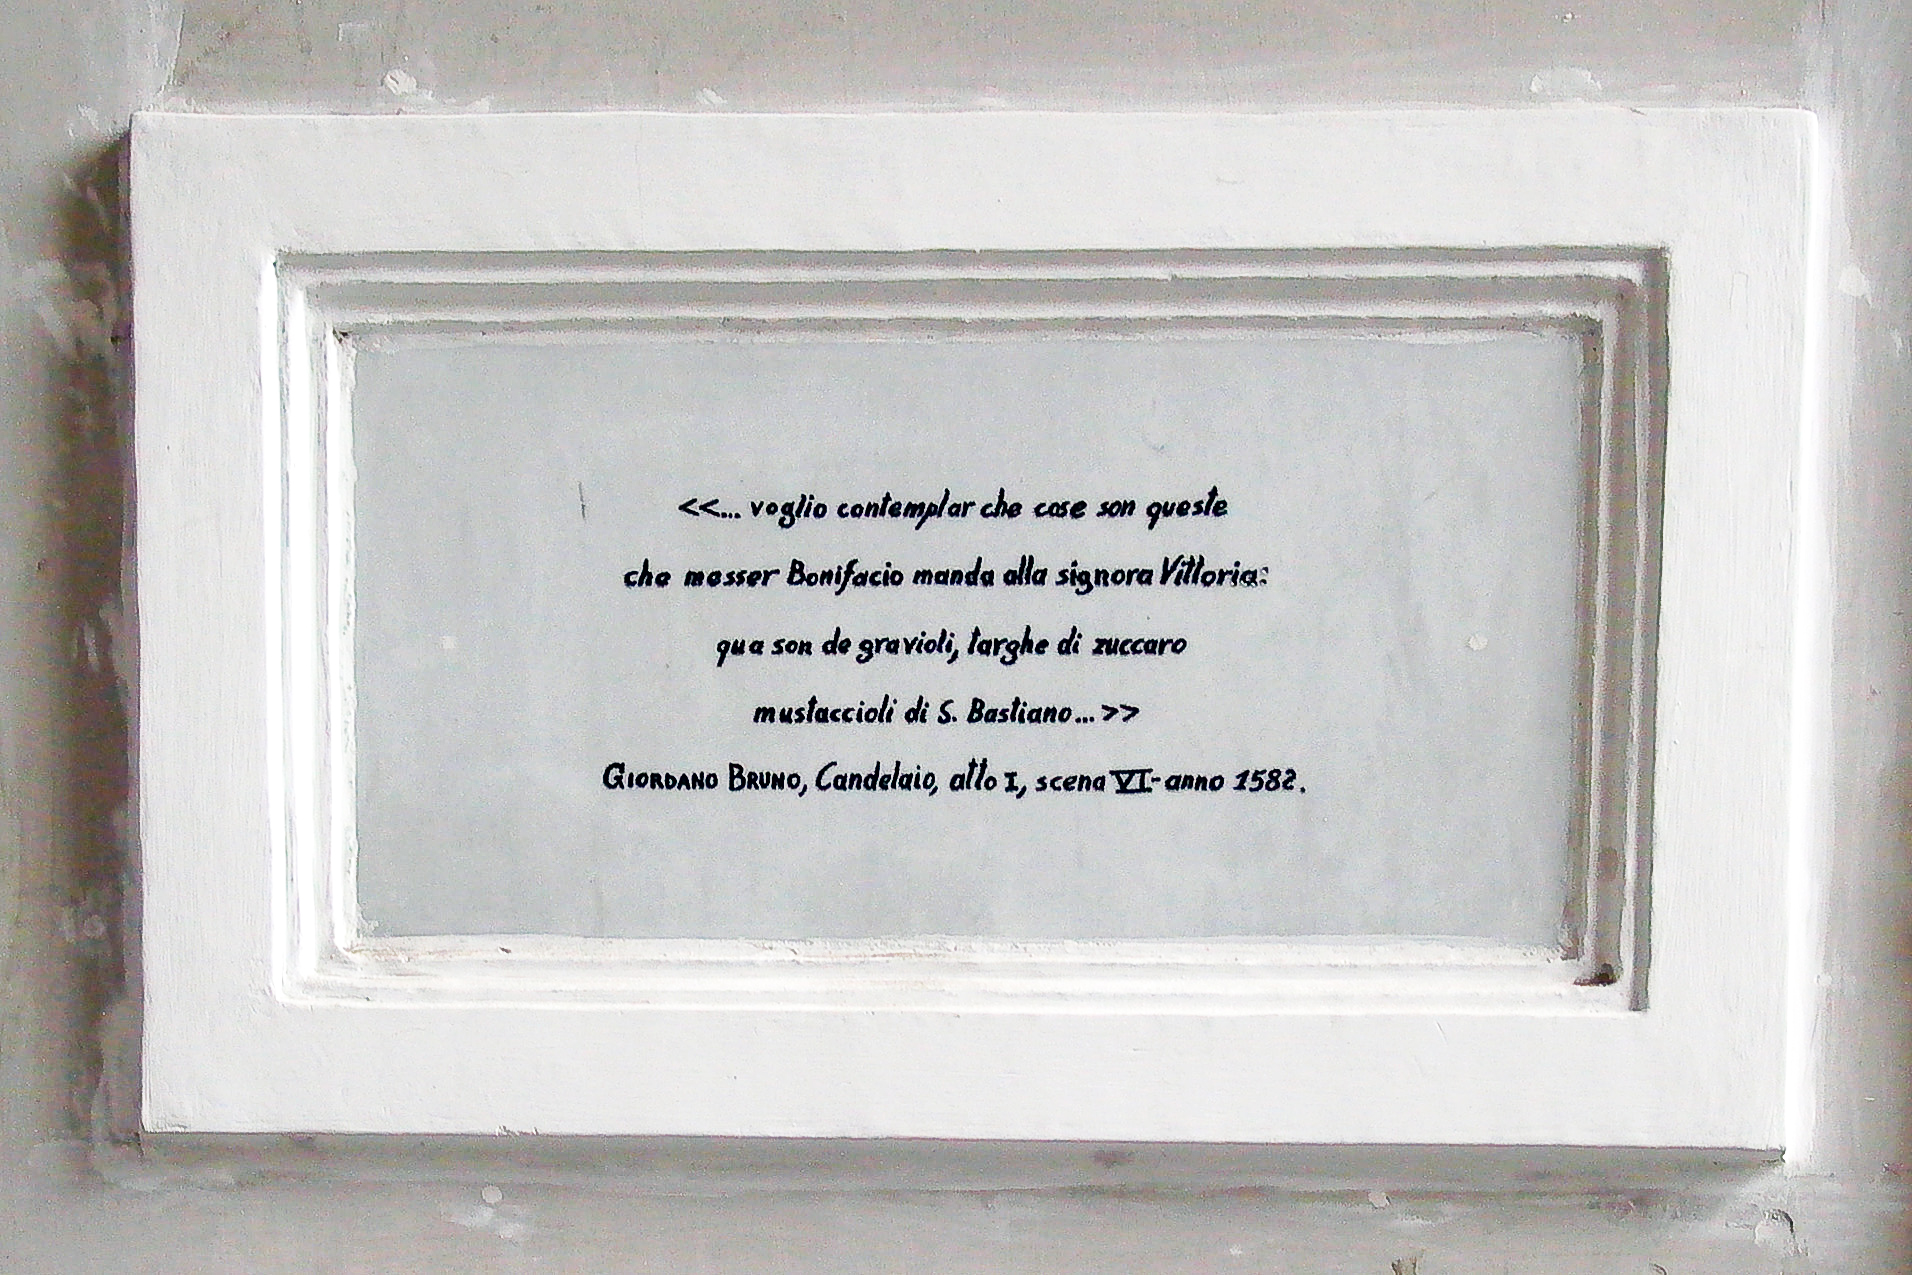 <<... voglio contemplar che cose son queste
che messer Bonifacio manda alla signora Vittoria:
qua son de gravioli, targhe di zuccaro
mustaccioli di S. Bastiano... >>
GIORDANO BRUNO, Candelaio, atto I, scena VI - anno 1582.